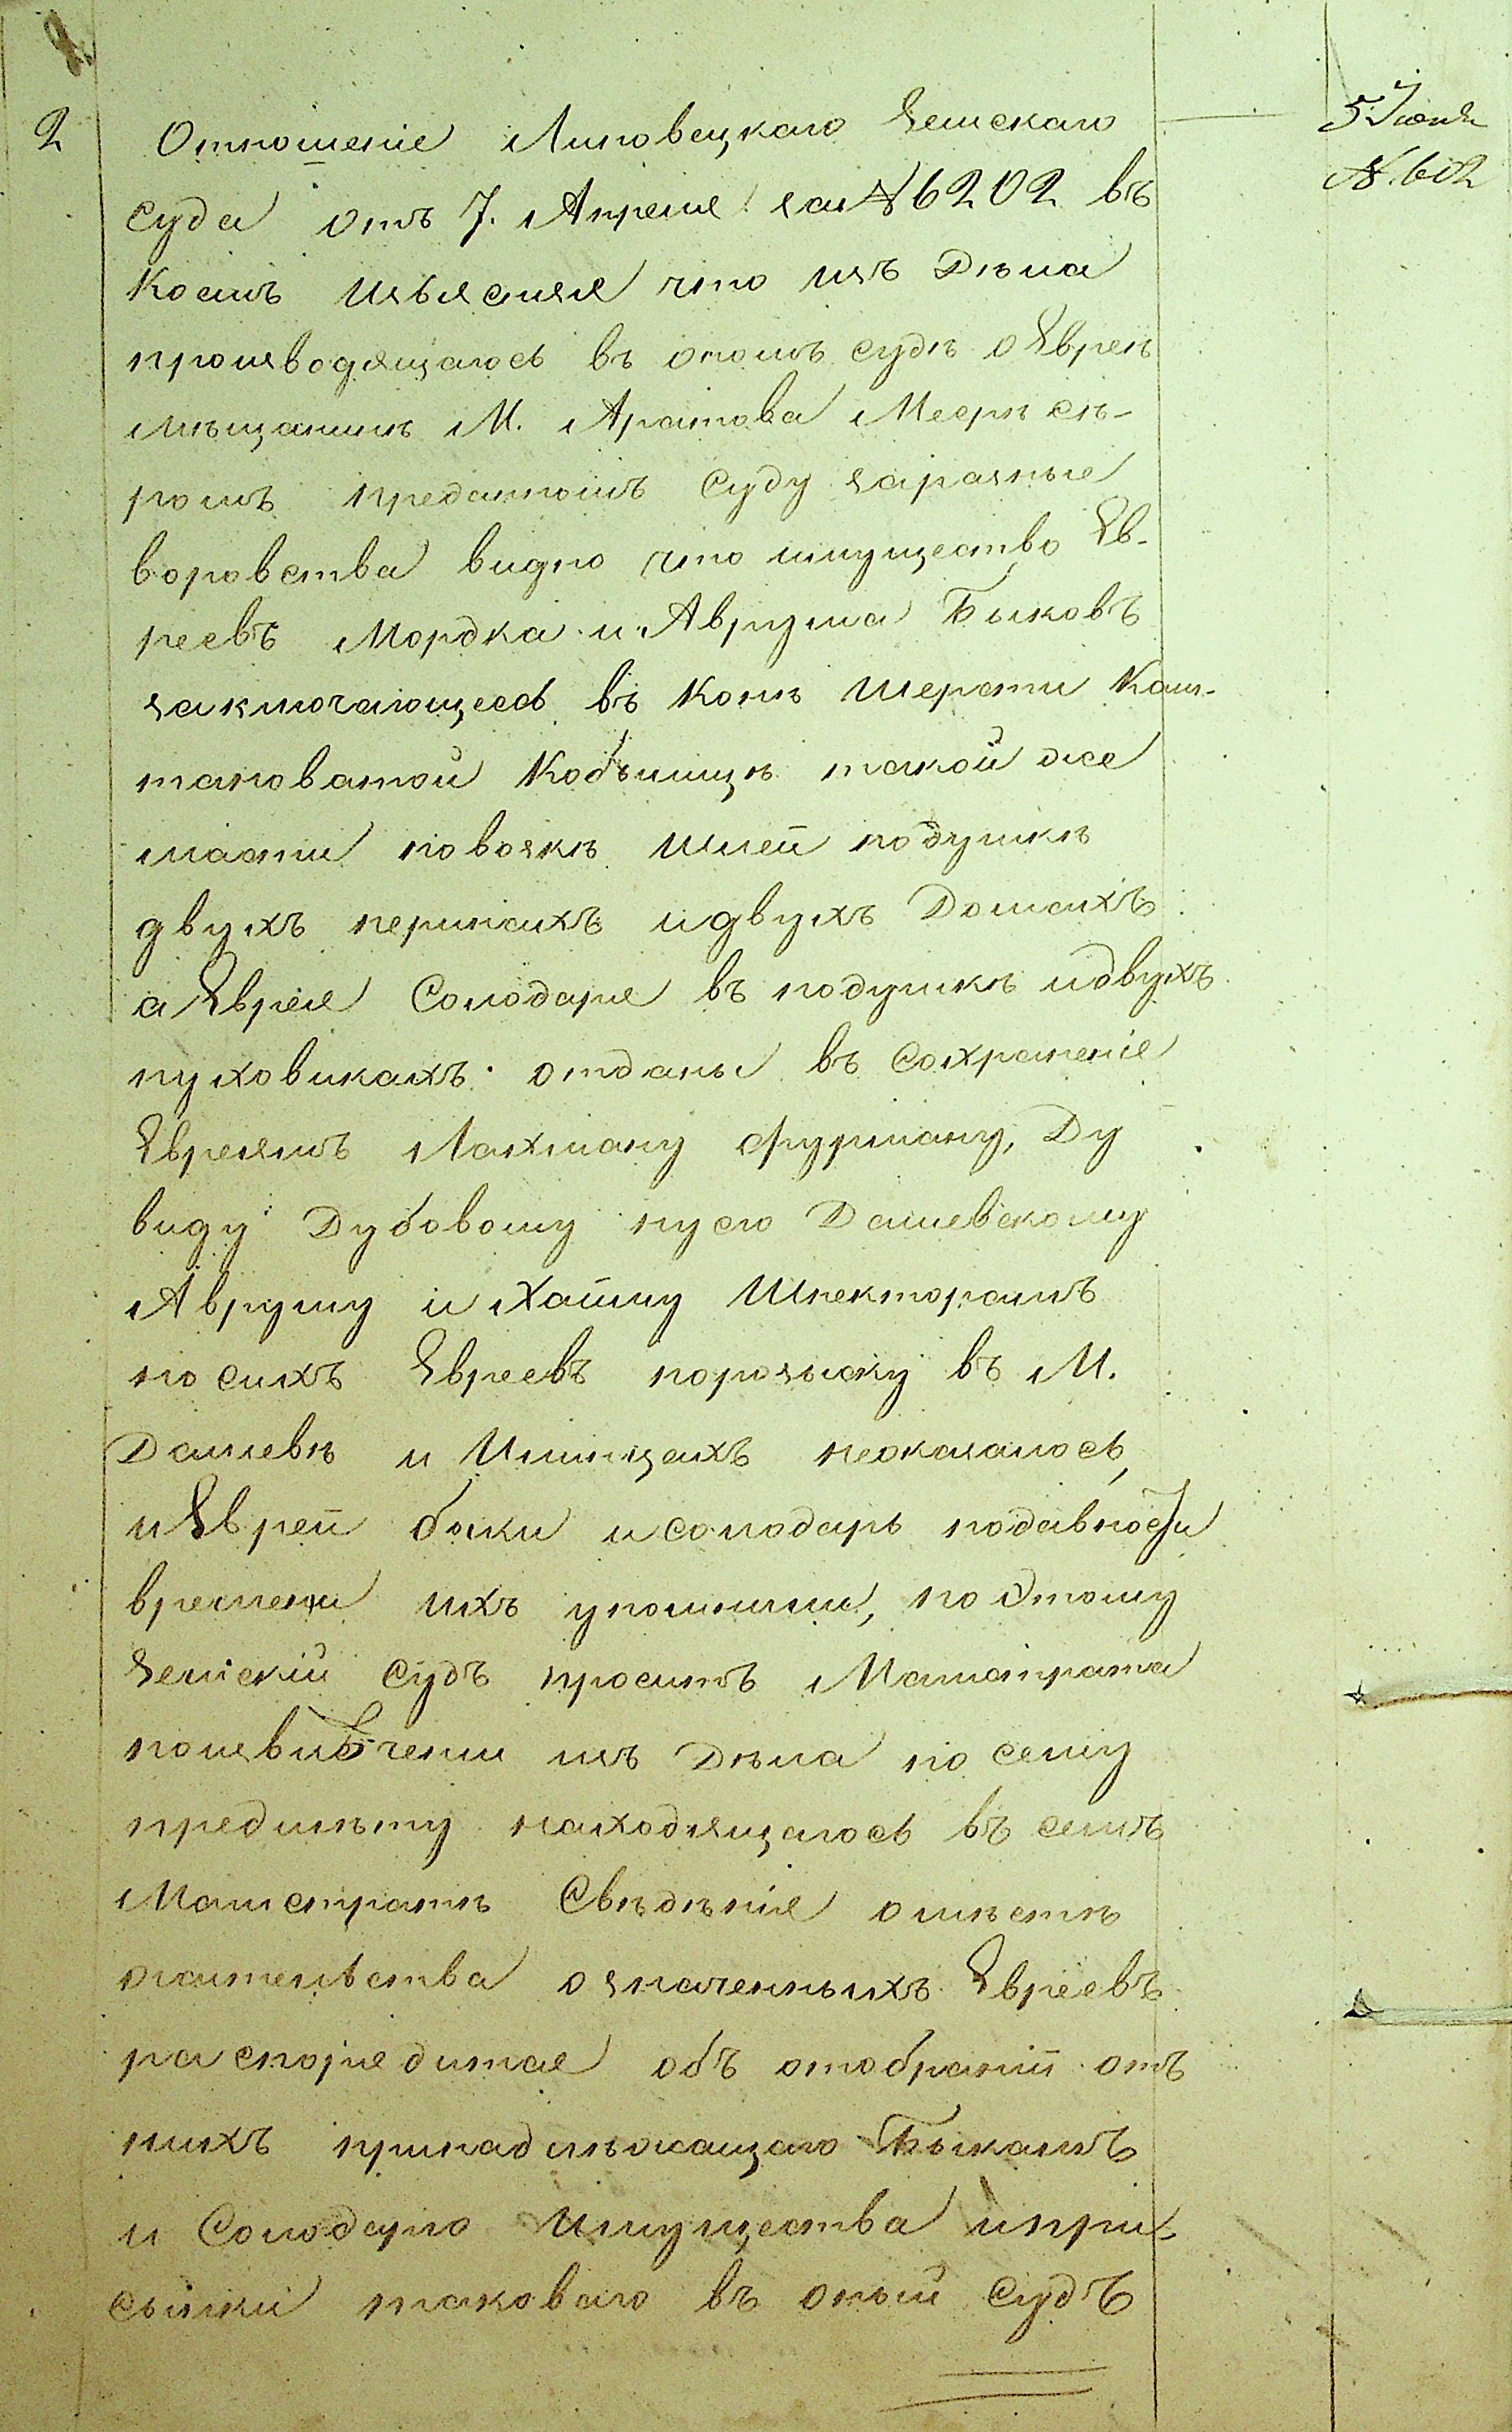 2
Отношеніе Липовецкаго Земскаго
5 Іюня
суда отъ 7. Апреля за №6202 въ
№. 612
Коемъ изъясняя что изъ Дѣла
производящагося въ ономъ судѣ о Евреѣ
мѣщанинѣ М. Аратова Меерѣ Сѣ-
ромъ преданномъ суду заразные
воровства видно что имущество Ев-
реевъ Мордка и Аврума Быковъ
заключающееся въ Конѣ шерсти Каш-
тановатой Кобылицѣ такой же
масти повозкѣ шлей подушкѣ
двухъ перинахъ и двухъ Домахъ
а Еврея Солодаря въ подушкѣ и двухъ
пуховикахъ отданы въ Сохраненіе
Евреямъ Лахману Фурману, Ду
виду Дубовому нусю Дашевскому
Авруму и Хаиму Шпекторамъ
но сихъ Евреевъ порозыску въ М.
Дашевѣ и Илинцахъ неоказалось,
и Евреи быки и солодарь подавности
времени ихъ упомнили, по этому
Земскій Судъ проситъ Магистрата
поизвлеченіи изъ Дѣла по сему
предмѣту находящагося въ семъ
Магистратѣ Свѣдѣнія о мѣстѣ
жительства означенныхъ Евреевъ
распорядится объ отобраніи отъ
нихъ принадлѣжащаго Быкамъ
и Солодарю Имущества и при-
сылки таковаго въ оный Судъ